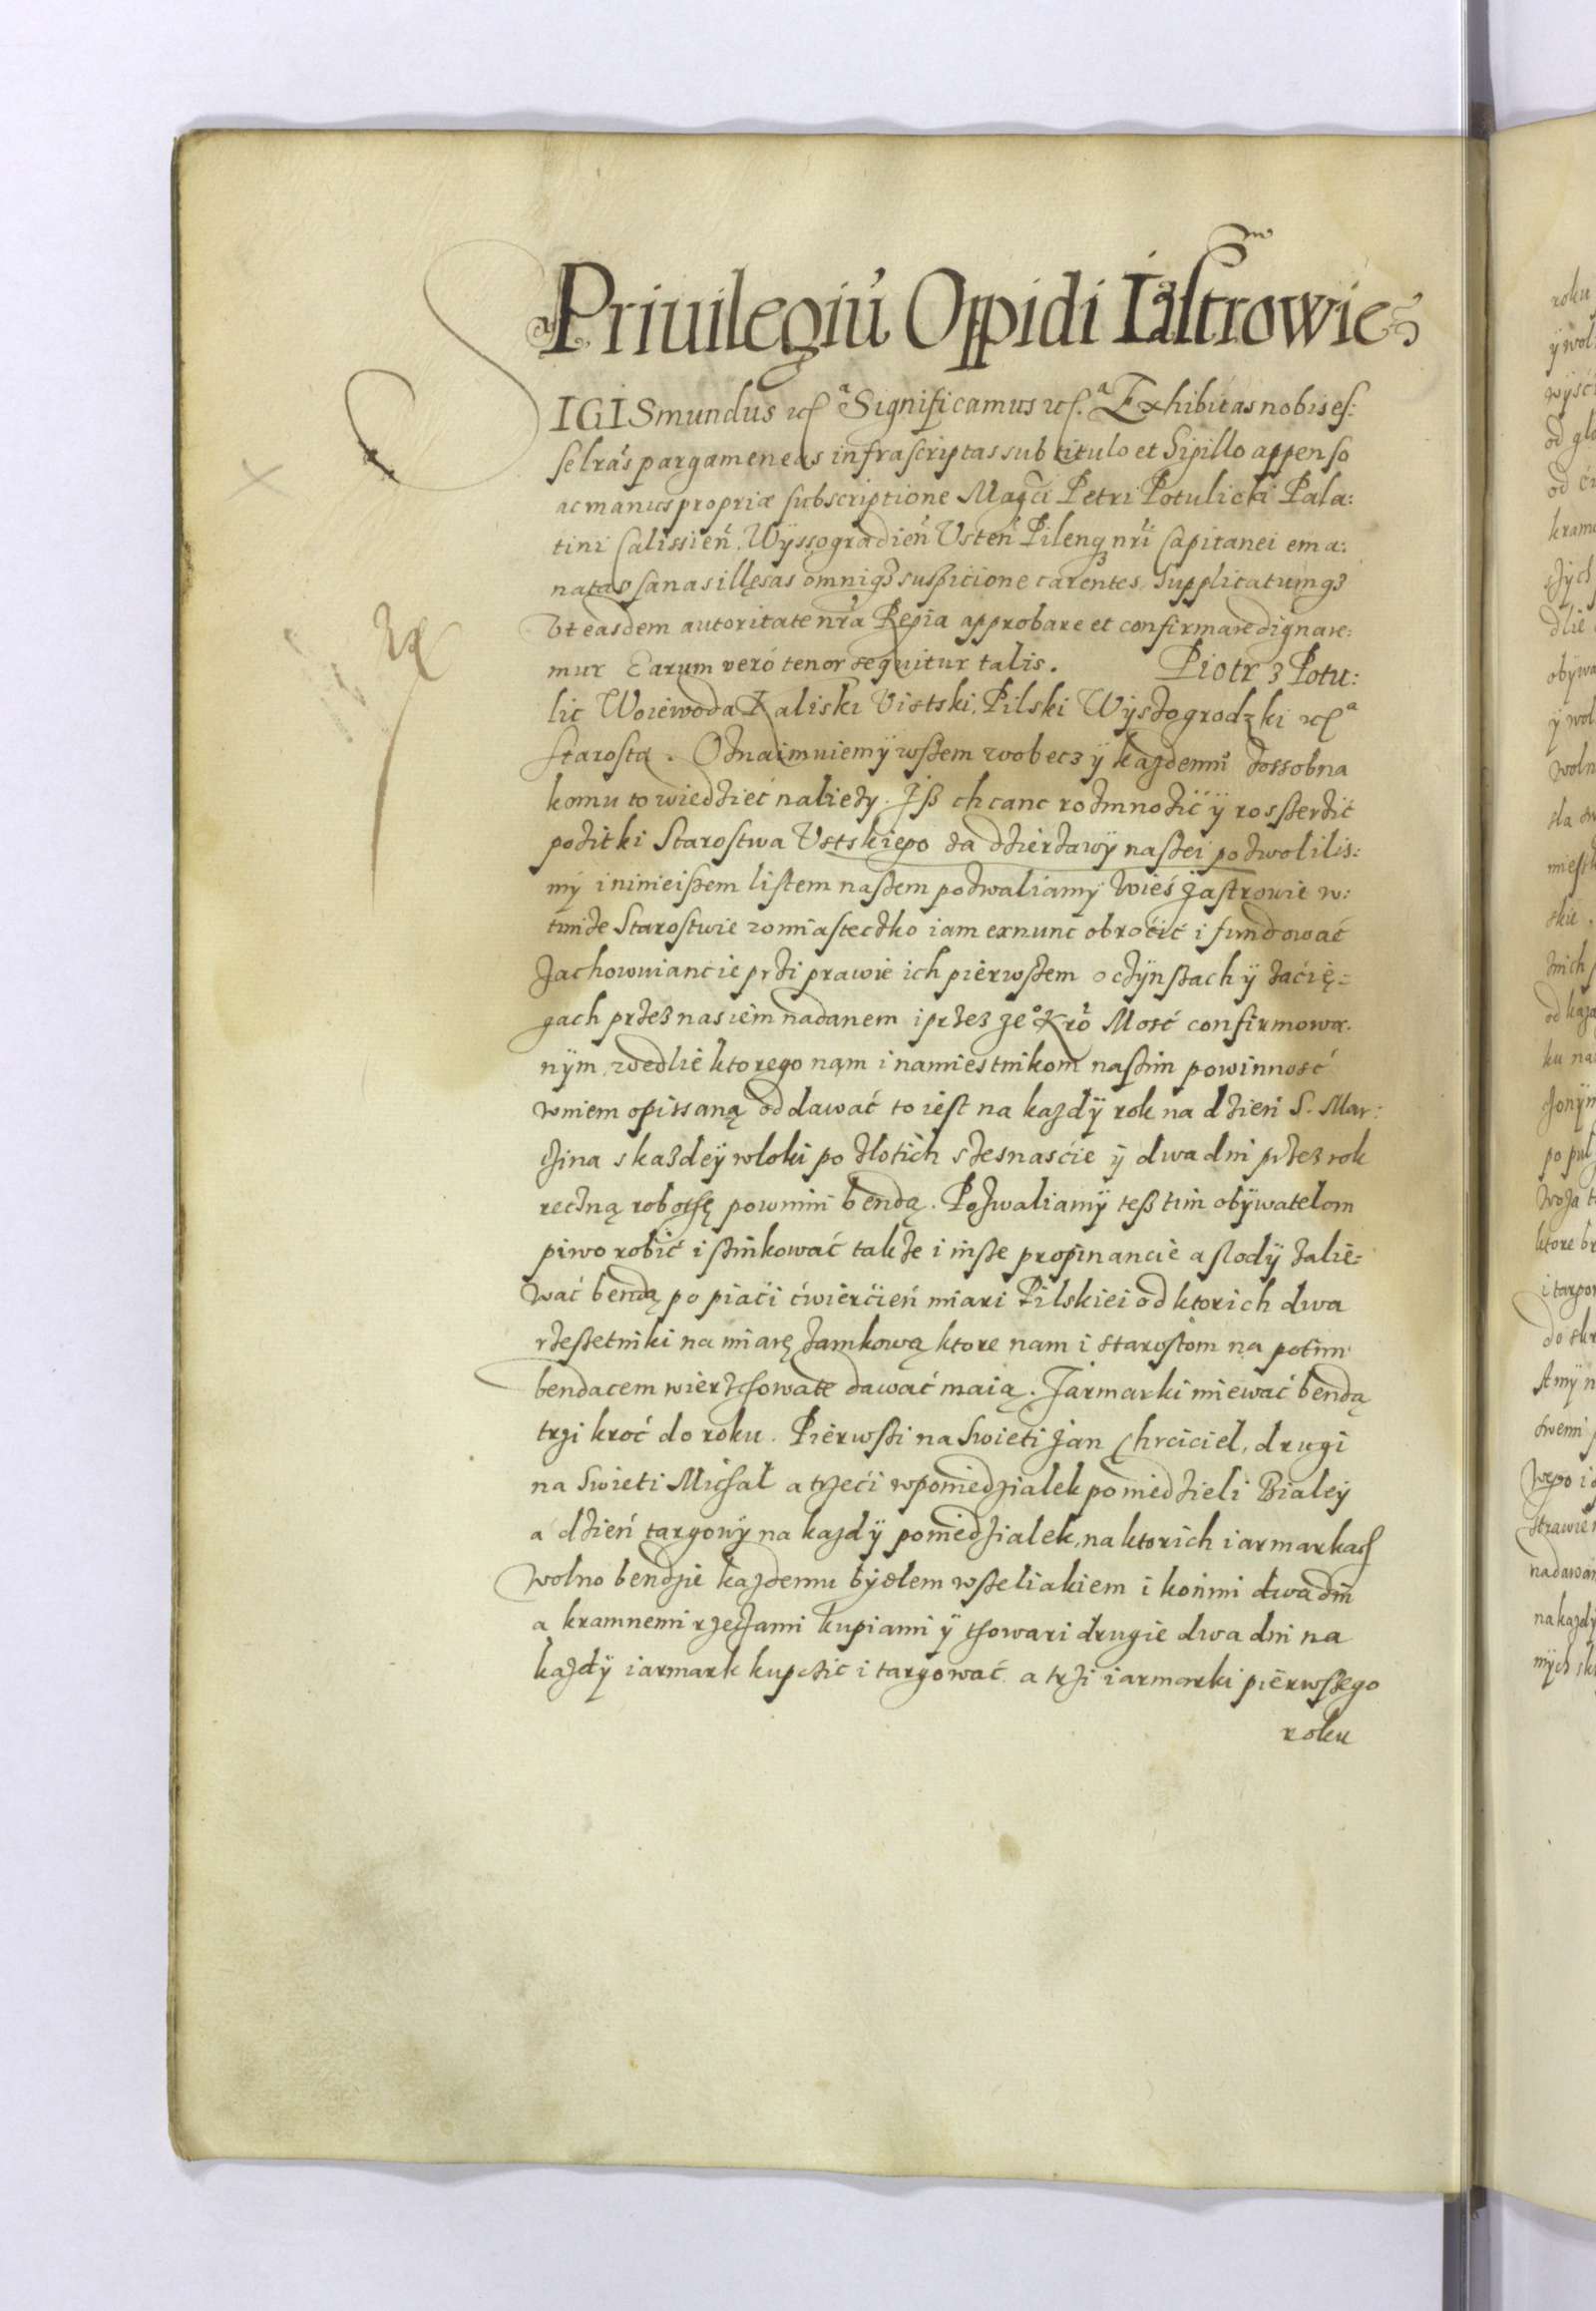 Priuilegiu Oppidi Iastrowie
SIGISmundus etc.ª Significamus etc.ª Exhibitas nobis es:
se lrãs pargameneas infrascriptas sub titulo et Sigillo appenso
ac manus propriæ subscriptione Magci Petri Potulicki Pala:
tini Calissień. Wÿssogradień Vsteń Pilenq3 nri Capitanei ema:
natas sanas illęsas omniq3 suspicione carentes. Supplicatumq3
Vt easdem autoritate nrã Regia approbare et confirmare dignare:
mur Earum veró tenor sequitur talis. Piotr z Potu:
lic Woiewoda Kaliski Vistski, Pilski Wÿszogrodzki etc.ª
starosta. Oznaimuiemÿ wszem wobecz ÿ kazdemu zossobna
komu to wiedzieć naliezy. Jß chcanc rozmnozić ÿ rosszerzić
pozitki Starostwa Vstskiego za dzierzawÿ naszei pozwolilis:
mÿ i ninieiszem listem naszem pozwaliamy Wieś Jastrowie w:
tmize Starostwie wo miasteczko iam exnunc obroćić i fundować
Zachowuiancie przi prawie ich pierwszem o czÿnszach ÿ zacię=
gach przez nas iem nadanem i przez Je° Kro Mość confirmowa:
nÿm, wedlie ktorego nąm i namiestnikom naszim powinność
wniem opissaną oddawać to iest na kazdÿ rok na dzień S. Mar:
czina s kazdeÿ wloki po zlotich szesnaście ÿ dwa dni przez rok
ręczną robothę powinni bendą. Pozwaliamÿ teß tim obÿwatelom
piwo robić i szinkować takze i insze propinancie a slodÿ zalie=
wać bendą po piaći ćwierćień miari Pilskiei od ktorich dwa
rzeszetniki na miarę zamkową ktore nam i starostom na potim
bendacem wierzchowate dawać maią. Jarmarki miewać bendą
trzi kroć do roku. Pierwszi na Swieti Jan Chrciciel, drugi
na Swieti Michał a trzeći w poniedzialek po niedzieli Bialeÿ
a dzień targowÿ na kazdÿ poniedzialek, na ktorich iarmarkach
wolno bendzie kazdemu bydlem wszeliakiem i końmi dwa dni
a kramnemi rzeczami kupiami ÿ thowari drugie dwa dni na
kazdÿ iarmark kupczic i targować a trzi iarmarki pierwszego
roku